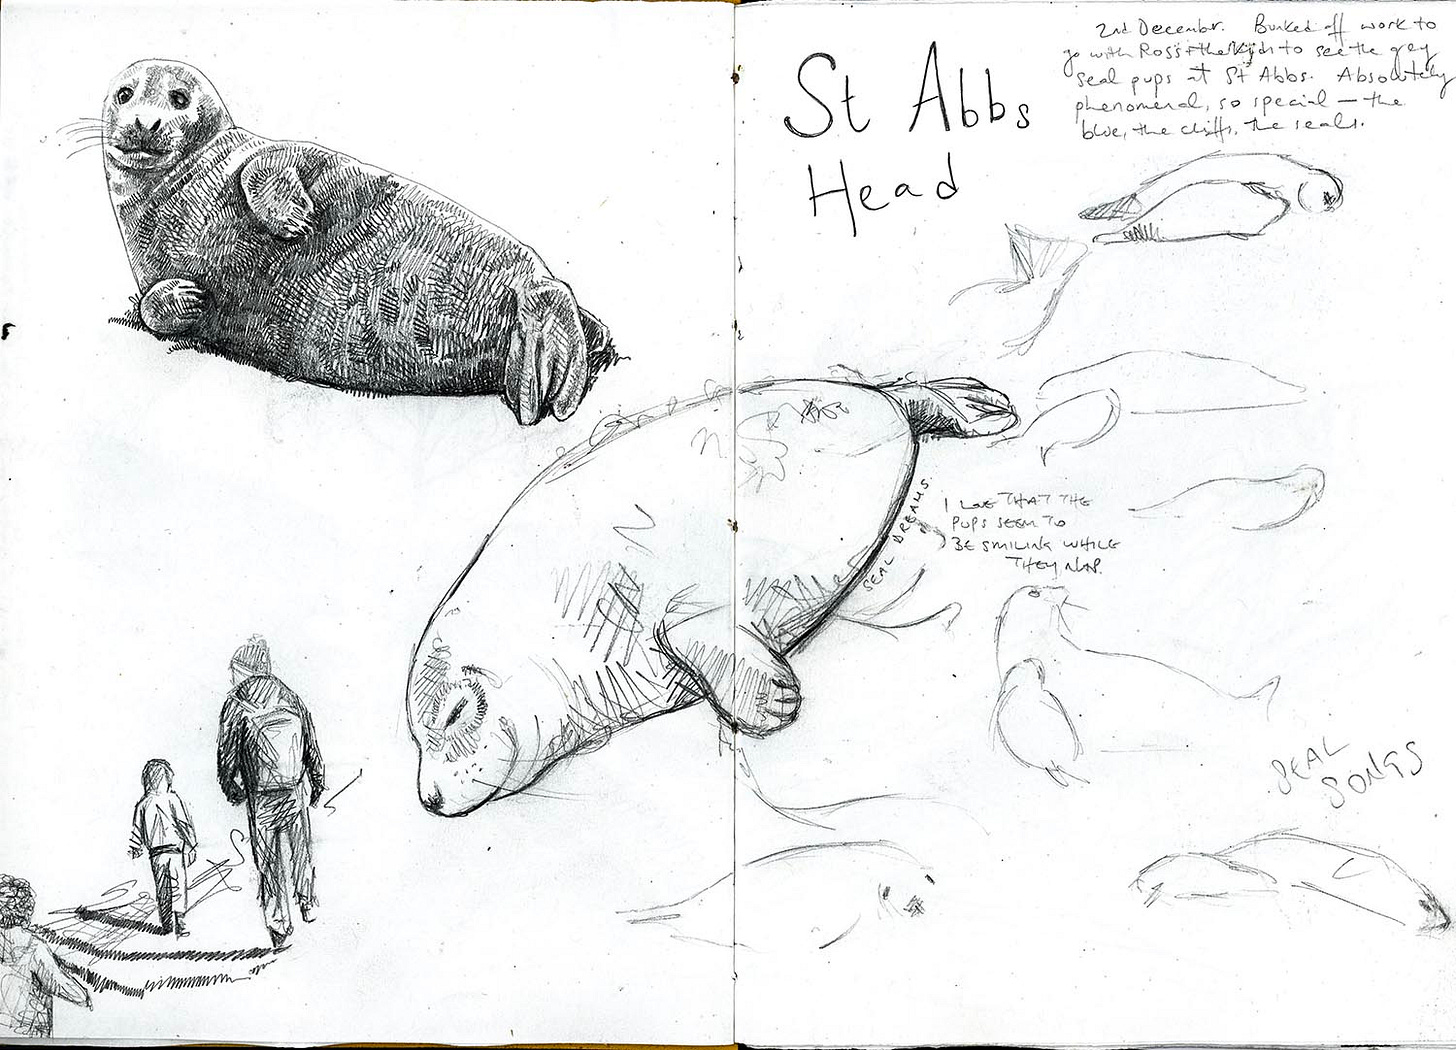 St Abbs
Head
2nd December. Bunked off work to
go with Ross + the kids to see the grey
seal pups at St Abbs. Absolutely
phenomenal, so special – the
blue, the cliffs, the seals.
SEAL DREAMS.
I LOVE THAT THE
PUPS SEEM TO
BE SMILING WHILE
THEY NAP.
SEAL
SONGS